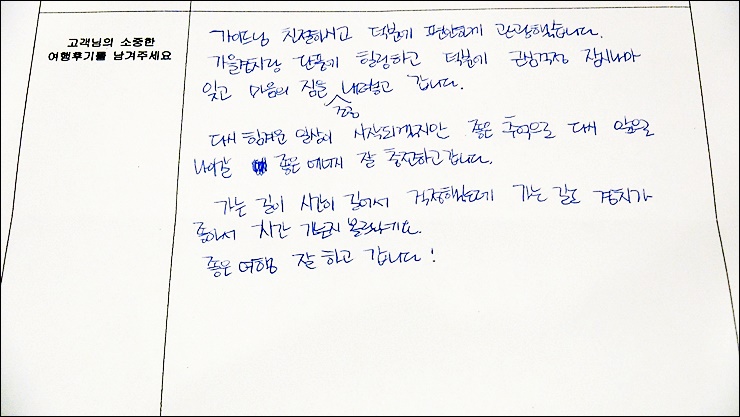 고객님의 소중한
여행후기를 남겨주세요
가이드님 친절하시고 덕분에 편안하게 관광했습니다.
가을경치랑 단풍에 힐링하고 덕분에 근심걱정 잠시나마
잊고 마음의 짐을 조금 내려놓고 갑니다.
다시 힘겨운 일상이 시작되겠지만 좋은 추억으로 다시 앞으로
나아갈 좋은 에너지 잘 충전하고 갑니다.
가는 길이 시간이 길어서 걱정했는데 가는 길도 경치가
좋아서 시간 가는지 몰랐네요.
좋은 여행 잘 하고 갑니다!